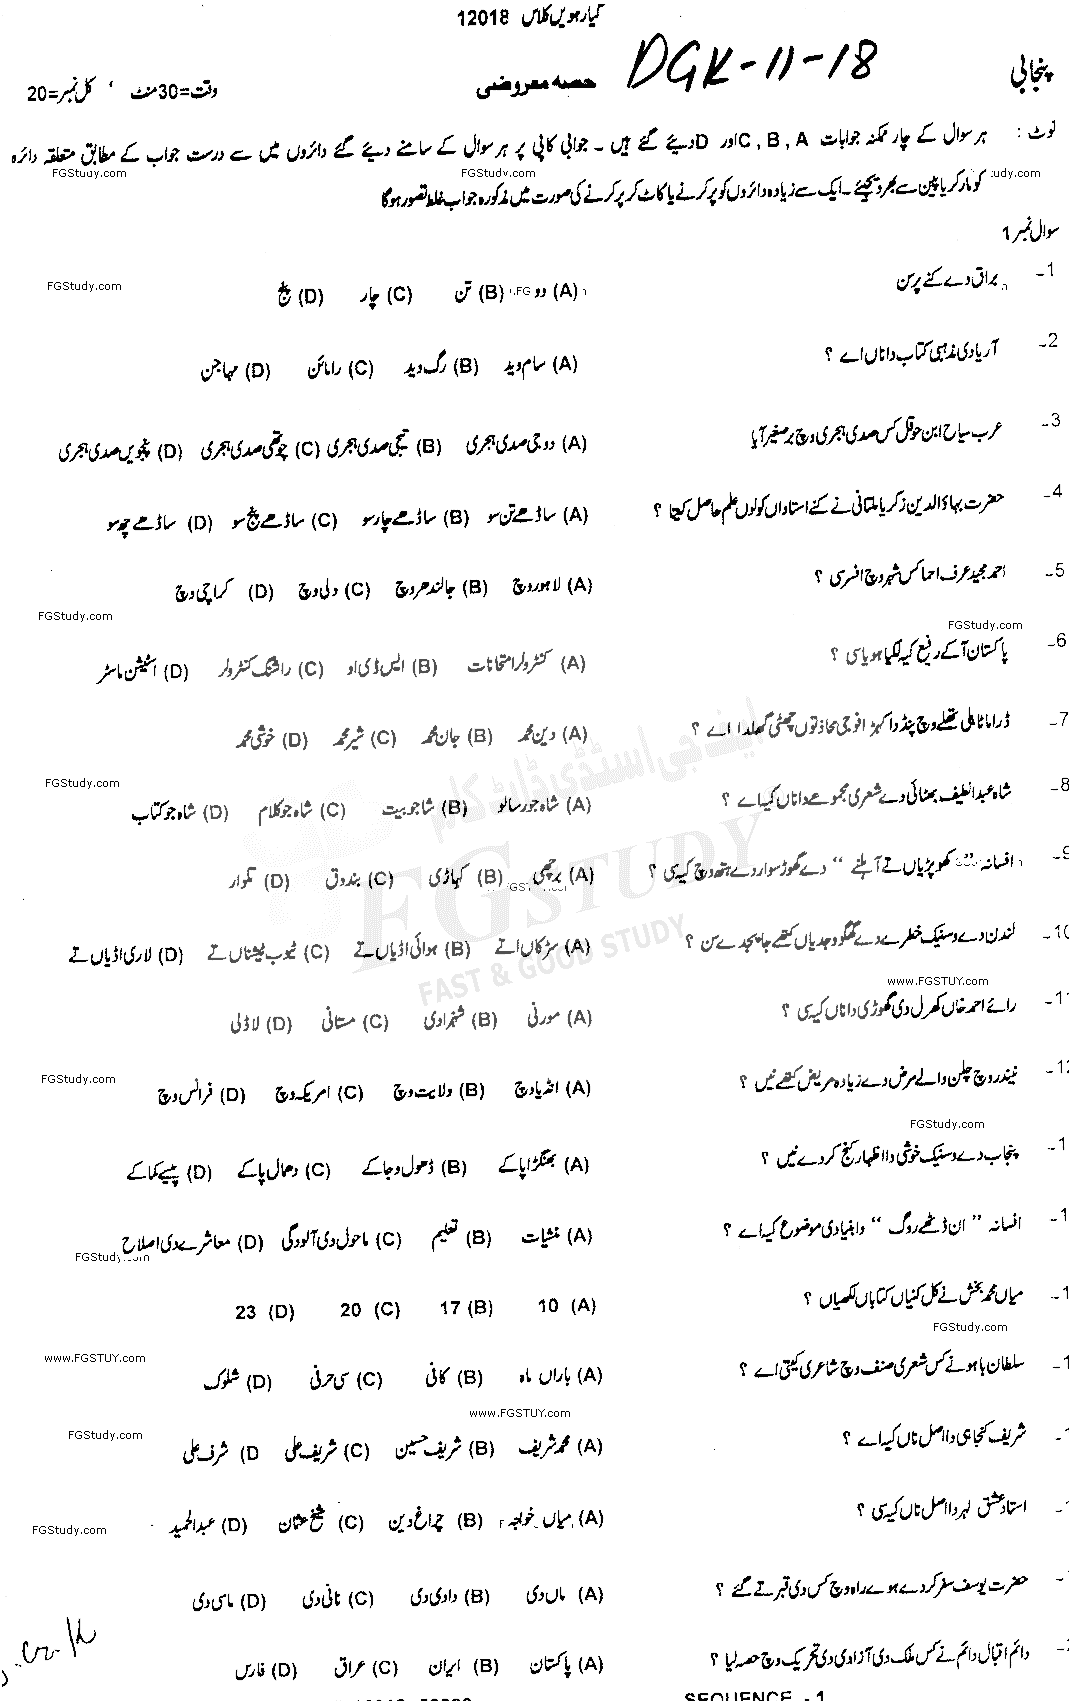 گیارہویں کلاس 12018
پنجابی DGK-11-18 حصہ معروضی وقت=30 منٹ ، کل نمبر=20
نوٹ : ہر سوال کے چار ممکنہ جوابات C , B , A اور D دیئے گئے ہیں - جوابی کاپی پر ہر سوال کے سامنے دیئے گئے دائروں میں سے درست جواب کے مطابق متعلقہ دائرہ
FGStudy.com FGStudy.com udy.com
کو مارکر یا پین سے بھر دیجئے - ایک سے زیادہ دائروں کو پر کرنے یا کاٹ کر پر کرنے کی صورت میں مذکورہ جواب غلط تصور ہوگا
سوال نمبر 1
1- براق دے کنے پر سن
(A) دو (B) تن (C) چار (D) پنج
FGStudy.com
2- آریا دی مذہبی کتاب دا ناں اے ؟
(A) سام وید (B) رگ وید (C) رامائن (D) مہاجن
3- عرب سیاح ابن حوقل کس صدی ہجری وچ برصغیر آیا
(A) دوجی صدی ہجری (B) تیجی صدی ہجری (C) چوتھی صدی ہجری (D) پنجویں صدی ہجری
4- حضرت بہاؤالدین زکریا ملتانی نے کنے استاداں کولوں علم حاصل کیتا ؟
(A) ساڈھے تن سو (B) ساڈھے چار سو (C) ساڈھے پنج سو (D) ساڈھے چھ سو
5- احمد مجید عرف احما کس شہر وچ افسر سی ؟
(A) لاہور وچ (B) جالندھر وچ (C) دلی وچ (D) کراچی وچ
FGStudy.com
FGStudy.com
6- پاکستان آ کے رفیع کیہ لگیا ہویا سی ؟
(A) کنٹرولر امتحانات (B) ایس ڈی او (C) راشنگ کنٹرولر (D) اسٹیشن ماسٹر
7- ڈراما ٹاہلی تھلے وچ پنڈ دا کہڑا فوجی محاذ توں چھٹی گھلدا اے ؟
(A) دین محمد (B) جان محمد (C) شیر محمد (D) خوشی محمد
ایف جی اسٹڈی ڈاٹ کام
FGStudy.com
8- شاہ عبدالطیف بھٹائی دے شعری مجموعے دا ناں کیہ اے ؟
(A) شاہ جو رسالو (B) شاجو بیت (C) شاہ جو کلام (D) شاہ جو کتاب
9- افسانہ " کھوپڑیاں تے آہلنے " دے گھوڑ سوار دے ہتھ وچ کیہ سی ؟
(A) برچھی (B) کہاڑی (C) بندوق (D) تلوار
FGSTUDY
FAST & GOOD STUDY
10- لندن دے وسنیک خطرے دے گھگو وجدیاں کتھے جا پجدے سن ؟
(A) سڑکاں اتے (B) ہوائی اڈیاں تے (C) ٹیوب ٹیشناں تے (D) لاری اڈیاں تے
www.FGSTUY.com
11- رائے احمد خاں کھرل دی گھوڑی دا ناں کیہ سی ؟
(A) مورنی (B) شہزادی (C) مستانی (D) لاڈلی
FGStudy.com
12- نیندر وچ چلن والے مرض دے زیادہ مریض کتھے نیں ؟
(A) انڈیا وچ (B) ولایت وچ (C) امریکہ وچ (D) فرانس وچ
FGStudy.com
1- پنجاب دے وسنیک خوشی دا اظہار کنج کردے نیں ؟
(A) بھنگڑا پا کے (B) ڈھول وجا کے (C) دھمال پا کے (D) پیسے کما کے
1- افسانہ " ان ڈٹھے روگ " دا بنیادی موضوع کیہ اے ؟
(A) منشیات (B) تعلیم (C) ماحول دی آلودگی (D) معاشرے دی اصلاح
FGStudy.com
1- میاں محمد بخش نے کل کنیاں کتاباں لکھیاں ؟
(A) 10 (B) 17 (C) 20 (D) 23
FGStudy.com
www.FGSTUY.com
1- سلطان باہو نے کس شعری صنف وچ شاعری کیتی اے ؟
(A) باراں ماہ (B) کافی (C) سی حرفی (D) شلوک
www.FGSTUY.com
FGStudy.com
1- شریف کنجاہی دا اصل ناں کیہ اے ؟
(A) محمد شریف (B) شریف حسین (C) شریف علی (D شرف علی
1- استاد عشق لہر دا اصل ناں کیہ سی ؟
(A) میاں خواجہ (B) چراغ دین (C) شیخ عثمان (D) عبدالحمید
FGStudy.com
- حضرت یوسف سفر کردے ہوے راہ وچ کس دی قبر تے گئے ؟
(A) ماں دی (B) دادی دی (C) نانی دی (D) ماسی دی
2- دائم اقبال دائم نے کس ملک دی آزادی دی تحریک وچ حصہ لیا ؟
(A) پاکستان (B) ایران (C) عراق (D) فارس
SEQUENCE - 1